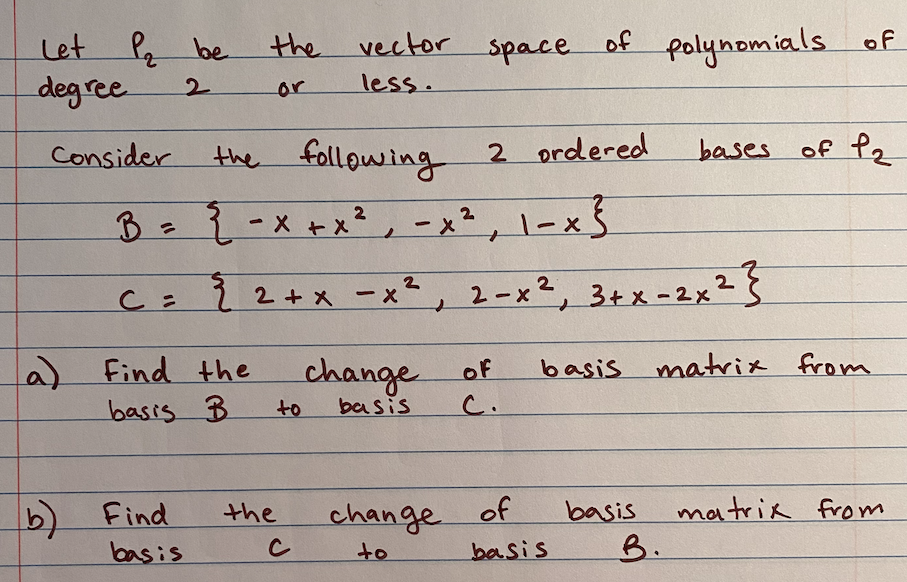 Let P₂ be the vector space of polynomials of
degree 2 or less.
Consider the following 2 ordered bases of P₂
B = { -x + x², -x², 1-x}
C = { 2 + x - x², 2 - x², 3 + x - 2x² }
a) Find the change of basis matrix from
basis B to basis C.
b) Find the change of basis matrix from
basis C to basis B.